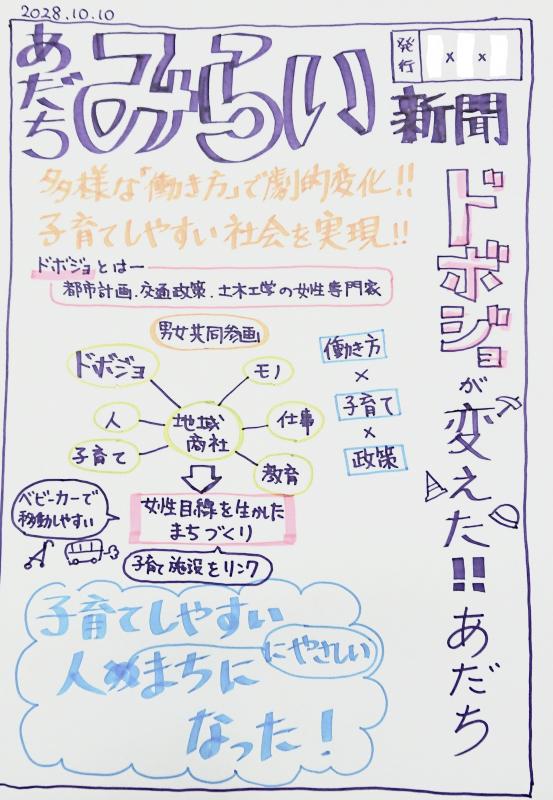 2028.10.10
あだち
みらい
新聞
発行
x x
ドボジョが変えた!!あだち
多様な「働き方」で劇的変化!!
子育てしやすい社会を実現!!
ドボジョとは
都市計画.交通政策.土木工学の女性専門家
男女共同参画
ドボジョ
モノ
人
地域
商社
仕事
子育て
教育
働き方
×
子育て
×
政策
ベビーカーで
移動しやすい
女性目線を生かした
まちづくり
子育て施設をリンク
子育てしやすい
人にやさしい
まちに
なった!